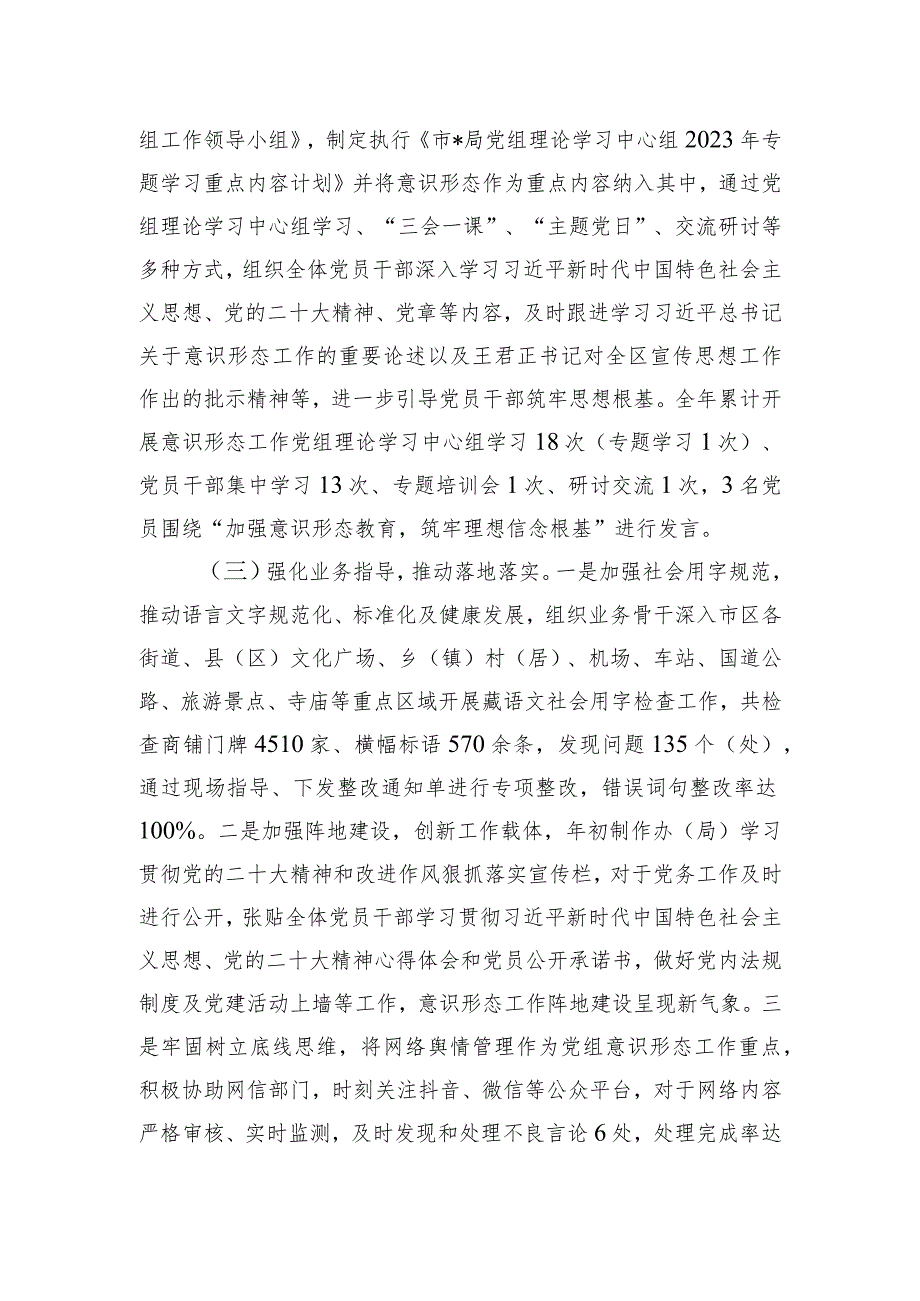 组工作领导小组》，制定执行《市*局党组理论学习中心组 2023 年专
题学习重点内容计划》并将意识形态作为重点内容纳入其中，通过党
组理论学习中心组学习、“三会一课”、“主题党日”、交流研讨等
多种方式，组织全体党员干部深入学习习近平新时代中国特色社会主
义思想、党的二十大精神、党章等内容，及时跟进学习习近平总书记
关于意识形态工作的重要论述以及王君正书记对全区宣传思想工作
作出的批示精神等，进一步引导党员干部筑牢思想根基。全年累计开
展意识形态工作党组理论学习中心组学习 18 次（专题学习 1 次）、
党员干部集中学习 13 次、专题培训会 1 次、研讨交流 1 次，3 名党
员围绕“加强意识形态教育，筑牢理想信念根基”进行发言。
（三）强化业务指导，推动落地落实。一是加强社会用字规范，
推动语言文字规范化、标准化及健康发展，组织业务骨干深入市区各
街道、县（区）文化广场、乡（镇）村（居）、机场、车站、国道公
路、旅游景点、寺庙等重点区域开展藏语文社会用字检查工作，共检
查商铺门牌 4510 家、横幅标语 570 余条，发现问题 135 个（处），
通过现场指导、下发整改通知单进行专项整改，错误词句整改率达
100%。二是加强阵地建设，创新工作载体，年初制作办（局）学习
贯彻党的二十大精神和改进作风狠抓落实宣传栏，对于党务工作及时
进行公开，张贴全体党员干部学习贯彻习近平新时代中国特色社会主
义思想、党的二十大精神心得体会和党员公开承诺书，做好党内法规
制度及党建活动上墙等工作，意识形态工作阵地建设呈现新气象。三
是牢固树立底线思维，将网络舆情管理作为党组意识形态工作重点，
积极协助网信部门，时刻关注抖音、微信等公众平台，对于网络内容
严格审核、实时监测，及时发现和处理不良言论 6 处，处理完成率达